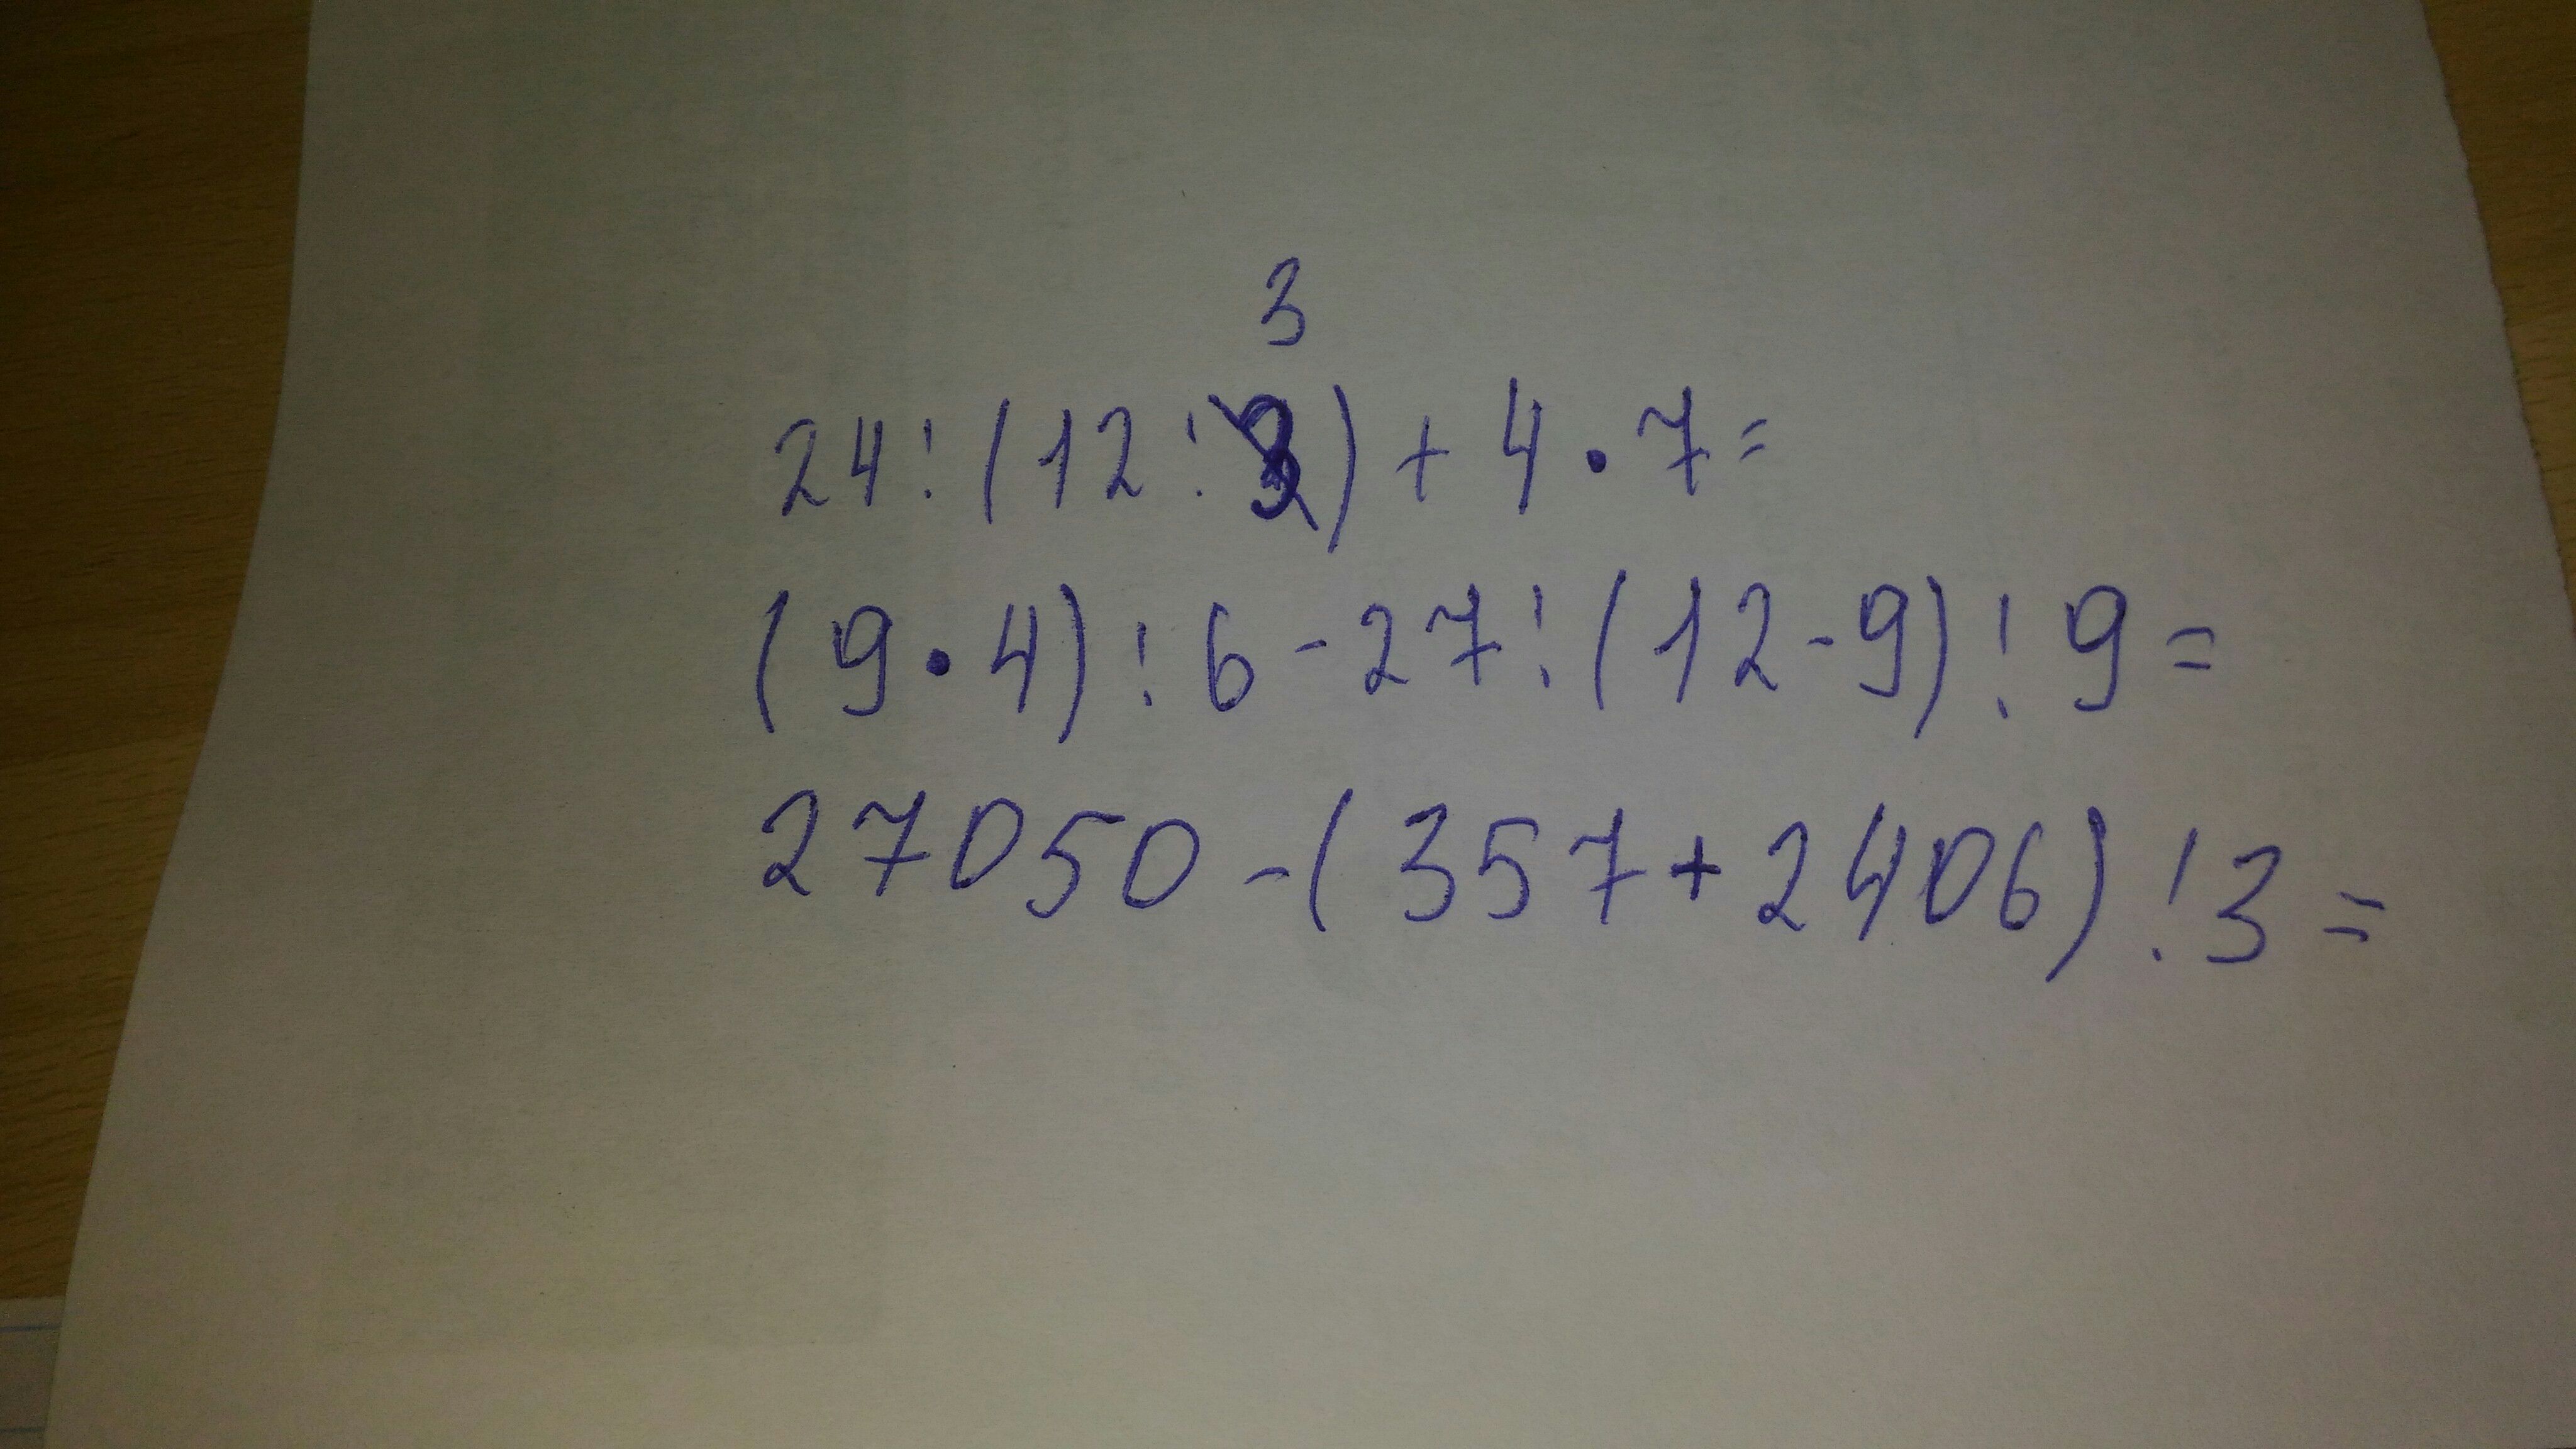 3
24:(12:)+4·7=
(9·4):6-27:(12-9):9=
27050-(357+2406):3=